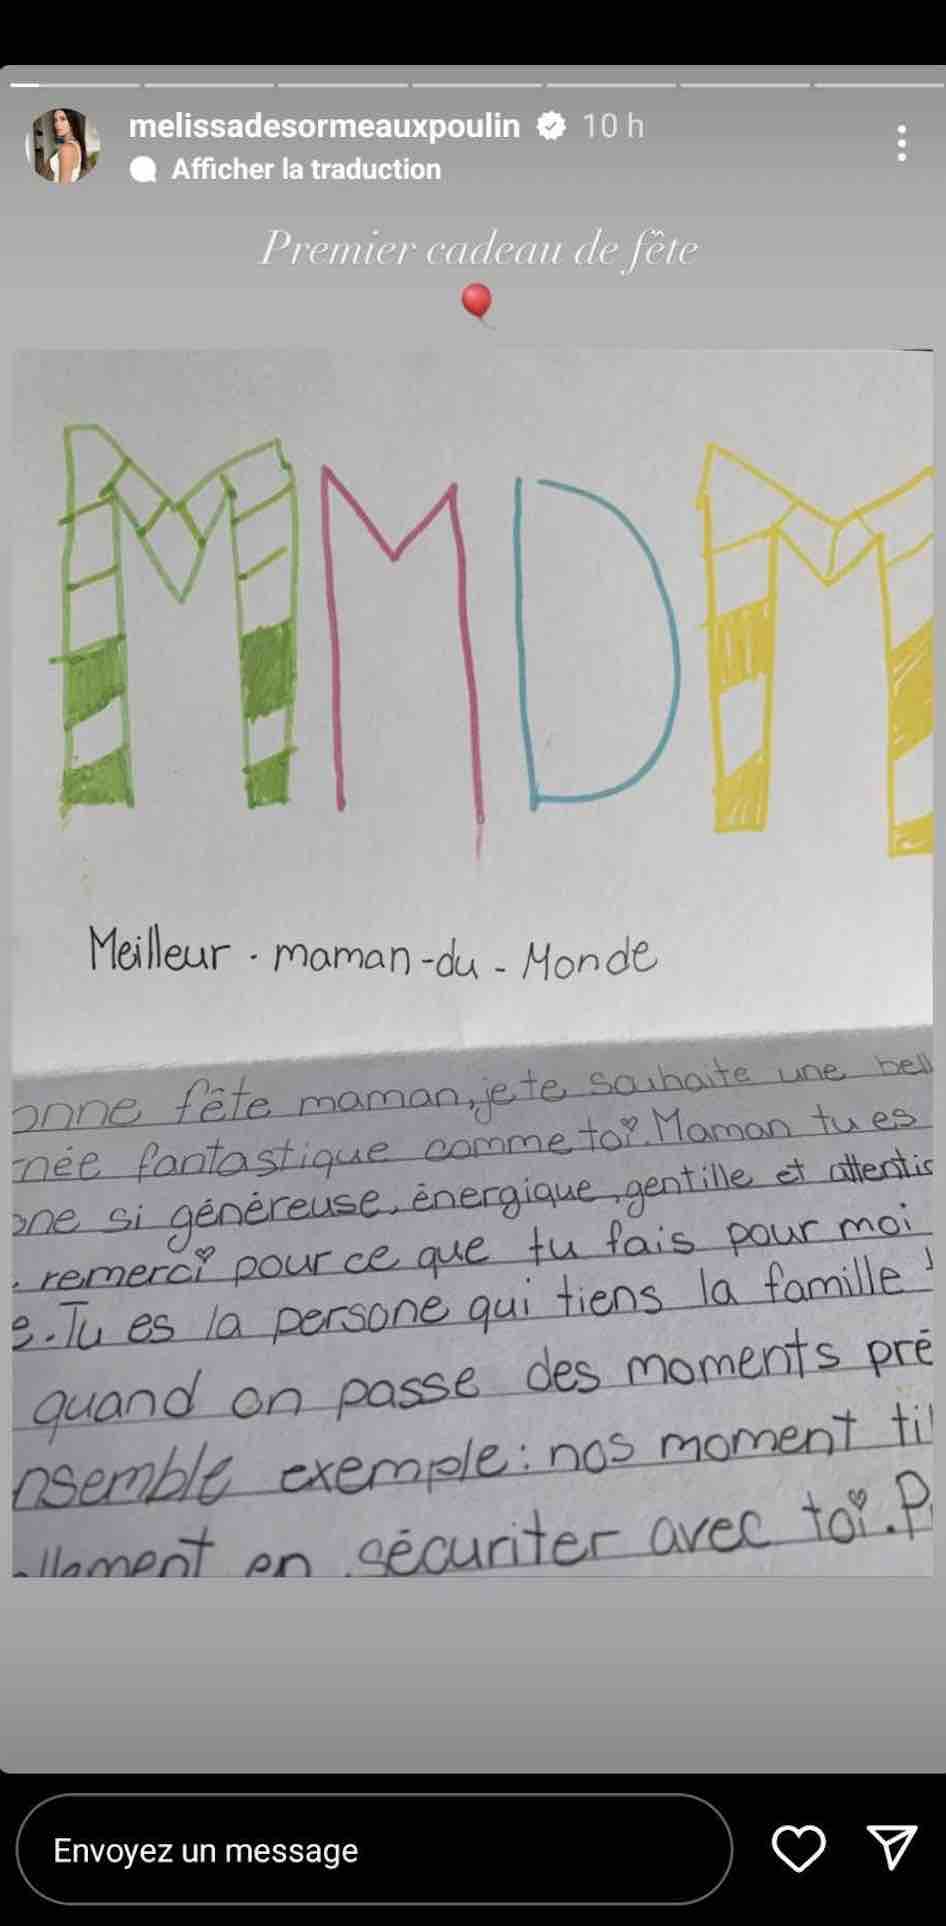 melissadesormeauxpoulin 10 h
Afficher la traduction
Premier cadeau de fête
MMDM
Meilleur . maman-du - Monde
onne fête maman, je te souhaite une bell
née fantastique comme toi. Maman tu es
one si généreuse, énergique, gentille et attentio
. remerci pour ce que tu fais pour moi
e. Tu es la persone qui tiens la famille
quand on passe des moments pré
nsemble exemple: nos moment ti
llement en sécuriter avec toi. P
Envoyez un message